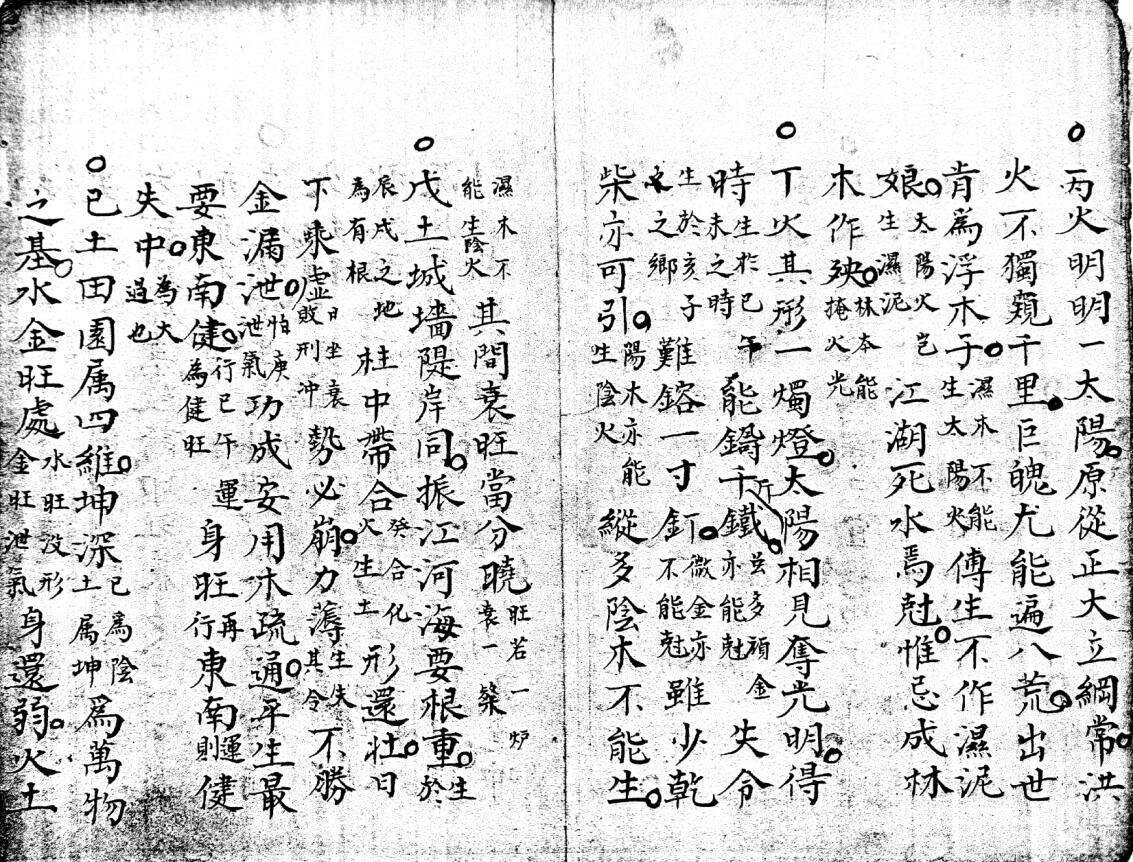 丙火明明一太陽。原從正大立綱常。洪
火不獨窺千里。巨魄尤能遍八荒。出世
肯爲浮木子。生太陽火濕木不能傅生不作濕泥
娘。太陽火岂生濕泥江湖死水焉尅。惟忌成林
木作殃。林木能掩火光
丁火其形一燭燈。太陽相見奪光明。得
時生於巳午未之時能鑄千斤鐵。亦能尅金失令
生於亥子之鄉難鎔一寸釘。微金亦不能尅雖少乾
柴亦可引。陽木亦能生陰火縱多陰木不能生。
濕木不能生陰火其間衰旺當分曉旺若一炉衰一檠
戊土城墻隄岸同。振江河海要根重。生於
辰戌之地為有根柱中帶合癸合化火生土形還壯。日
下乘虚日坐衰敗刑冲勢必崩。力薄生失其令不勝
金漏泄。怕庚泄氣功成安用木疏通。平生最
要東南健。行巳午為健旺運身旺再行東南運則健
失中。為太過也
己土田園属四維。坤深己爲陰土属坤爲萬物
之基。水金旺處水旺没形金旺泄氣身還弱。火土